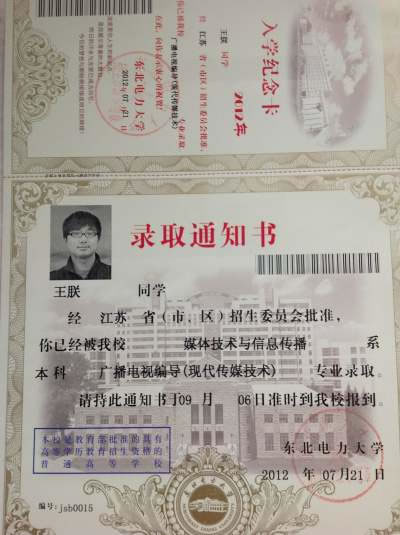 入学纪念卡
2012年
王朕 同学
经 江苏 省(市、区)招生委员会批准,
你已被我校
广播电视编导(现代传媒技术) 专业录取,
东北电力大学
2012年07月21日
录取通知书
王朕 同学
经 江苏 省(市、区)招生委员会批准,
你已经被我校 媒体技术与信息传播 系
本科 广播电视编导(现代传媒技术) 专业录取。
请持此通知书于09月 06日准时到我校报到。
本校是教育部批准的具有
高等学历教育招生资格的
普通高等学校
东北电力大学
2012 年 07月21日
编号:jsb0015